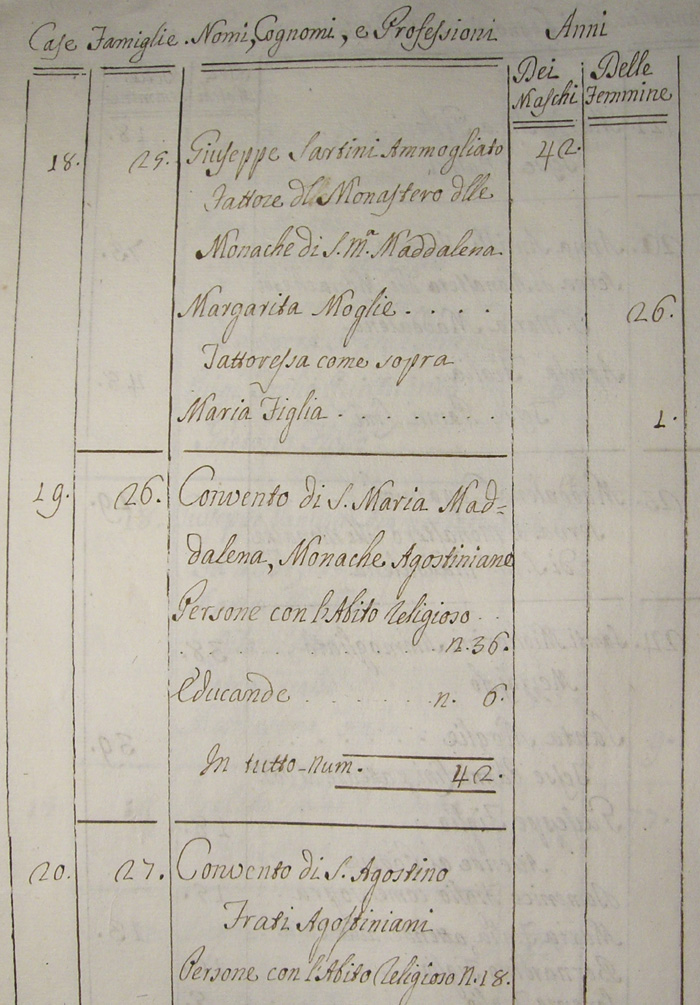 Case Famiglie. Nomi, Cognomi, e Professioni Anni
Dei Maschi Delle Femmine
18. 25. Giuseppe Sartini Ammogliato 42.
Fattore dll Monastero dlle
Monache di S. Mª Maddalena
Margarita Moglie . . . . 26.
Fattoressa come sopra
Maria Figlia . . . . . 1.
19. 26. Convento di S. Maria Mad=
dalena, Monache Agostiniane
Persone con l'Abito Religioso . .
. . . . . . n. 36.
Educande . . . . n. 6.
In tutto num. 42.
20. 27. Convento di S. Agostino
Frati Agostiniani
Persone con l'Abito Religioso n. 18.